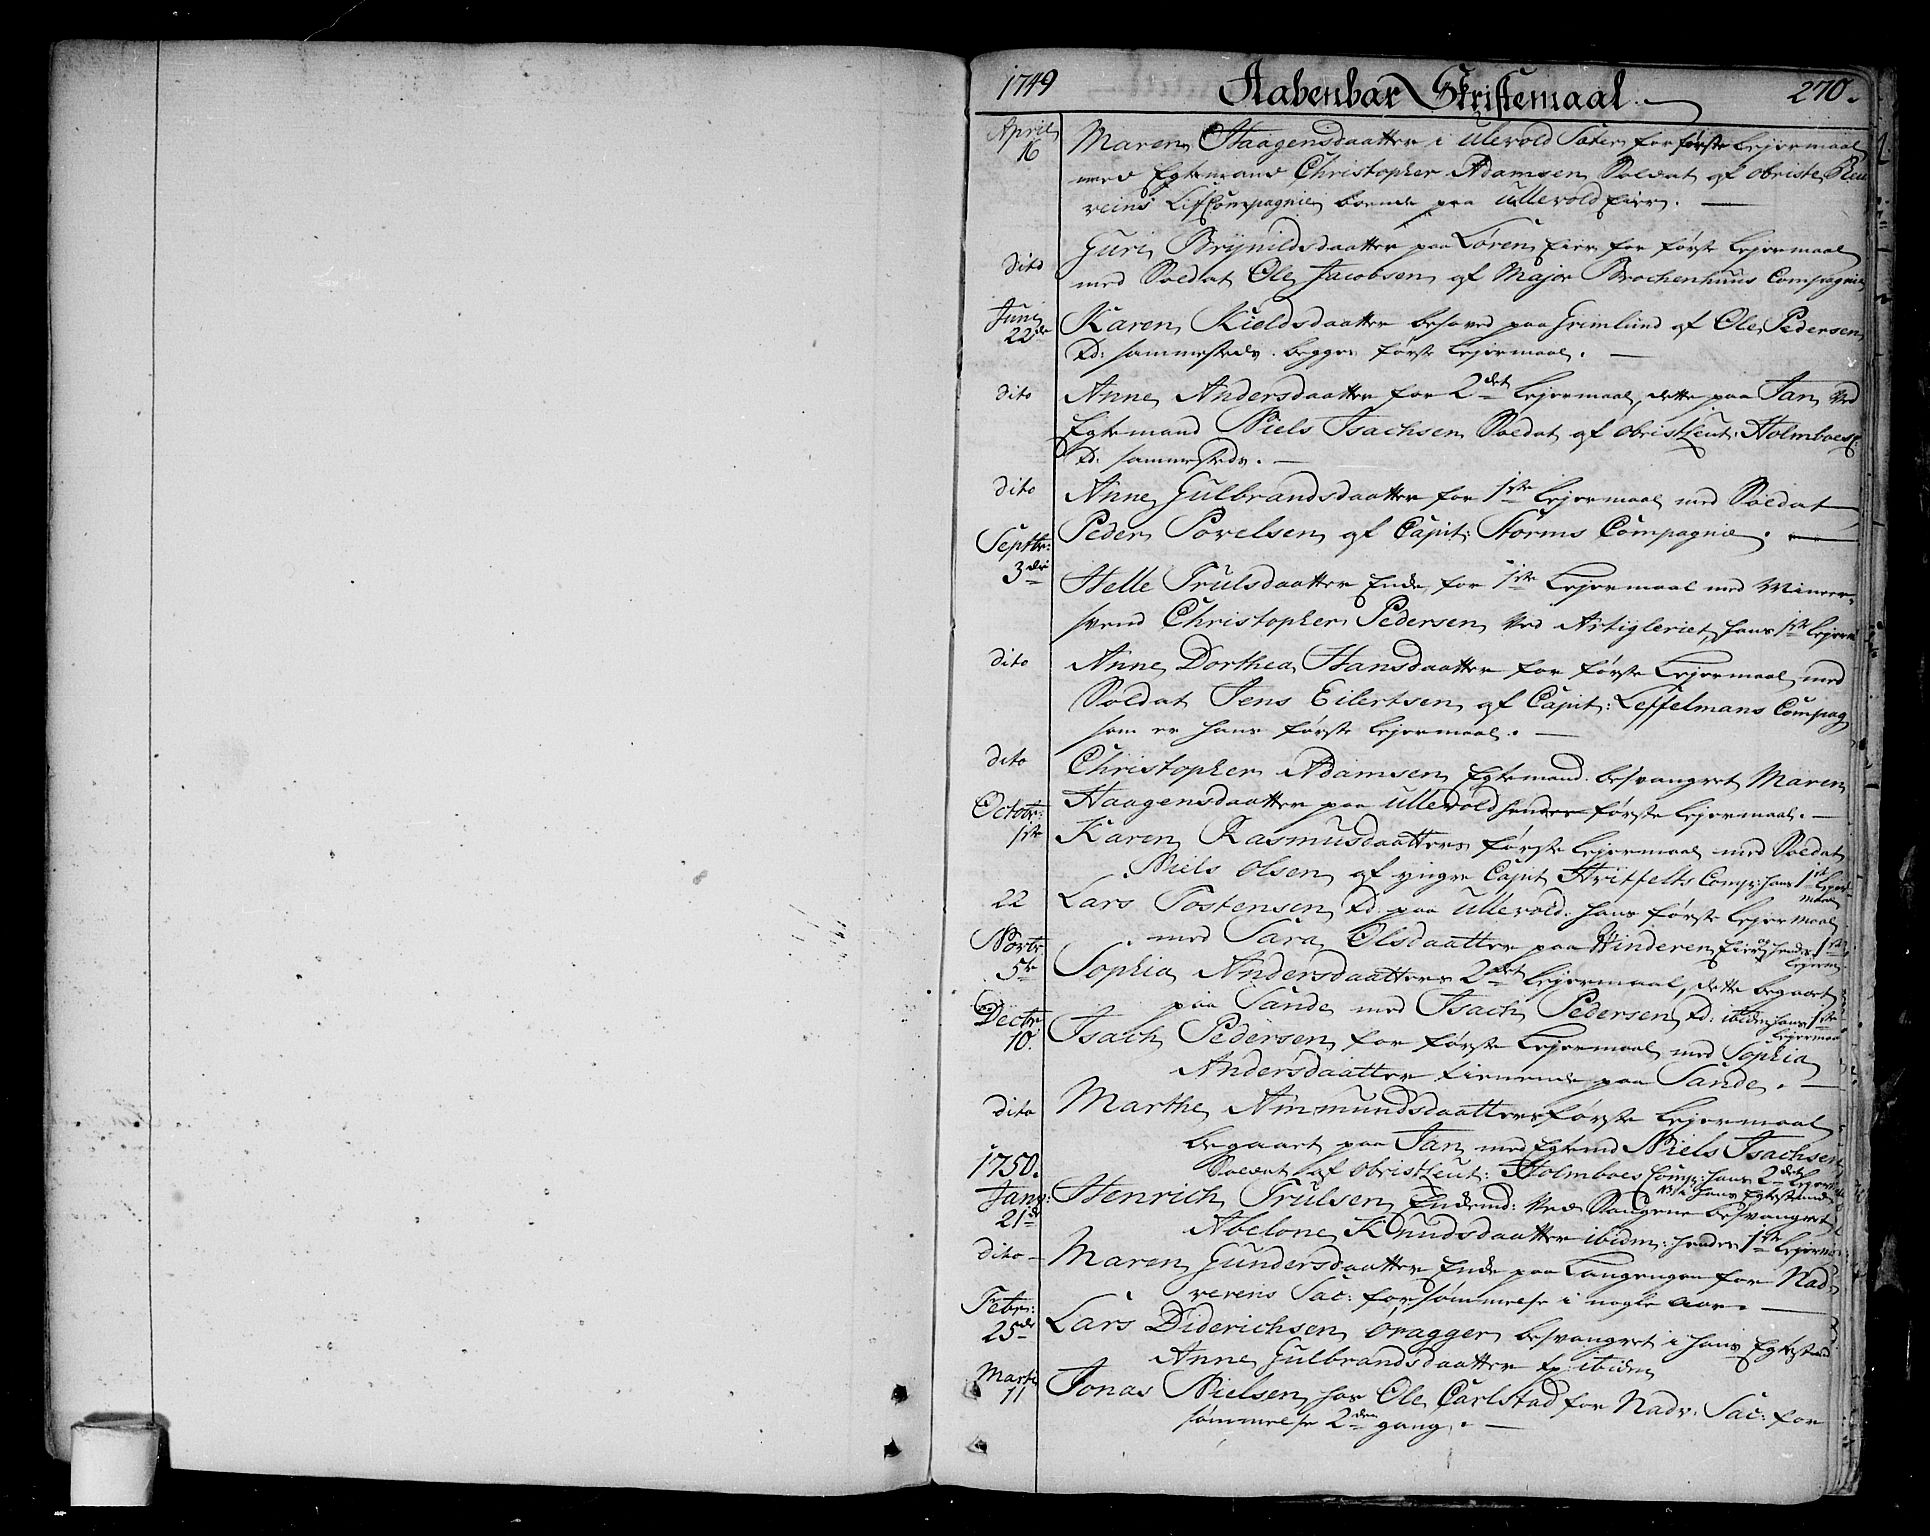 1749 Aabenbar Skriftemaal. 270.
April 16 Maren Haagensdaatter i Ulevold Sæter for første Lejermaal
med Egtemand Christopher Adamsen Soldat af Obriste
reins Lif Compagnie boende paa Ullevold Eier.
dito Guri Brynildsdaatter paa Løren Eier for første Lejermaal
med Soldat Ole Jacobsen af Major Brochenhuus Compagnie
Junij 22de Karen Kieldsdaatter besoved paa Grimlund af Ole Pedersen
td: sammesteds. begges første Lejermaal.
dito Anne Andersdaatter for 2det Lejermaal, dette paa Tan ved
Egtemand Niels Isachsen Soldat af ObristLeut: Holmboes C:
td: sammesteds.
dito Anne Gulbrandsdaatter for 1ste Lejermaal med Soldat
Septbr: 3die Peder Povelsen af Capit: Storms Compagnie.
Helle Trulsdaatter Enke for 1ste Lejermaal med Mineer-
svend Christopher Pedersen ved Artigleriet, hans 1ste Lejerm
dito Anne Dorthea Hansdaatter for første Lejermaal med
Soldat Jens Eilertsen af Capit: Leffelmans Compag
som er hans første Lejermaal.
dito Christopher Adamsen Egtemand besvangret Maren
Haagensdaatter paa Ullevold hendes første Lejermaal.
Octobr: 1ste Karen Rasmusdaatters første Lejermaal med Soldat
Niels Olsen af yngre Capit Hvitfelts Comp: hans 1ste Lejer-
maal
22 Lars Tostensen td: paa Ullevold: hans første Lejermaal
med Sara Olsdaatter paa Vinderen Eier og hendes 1ste
Lejerm
Novbr 5te Sophia Andersdaatters 2det Lejermaal, dette begaaet
paa Sande med Isach Pedersen td: ibidm hans 1ste
Lejermaal
Decbr 10. Isach Pedersen for første Lejermaal med Sophia
Andersdaatter tienende paa Sande.
dito Marthe Ammundsdaatters første Lejermaal
begaaet paa Tan med Egtemd Niels Isachsen
Soldat af ObristLeut: Holmboes Comp: hans 2det Lejerm
i hans Egtestand
1750.
Janv: 21de Henrich Trulsen Enkemd: ved Slangene besvangret
Abelone Knudsdaatter ibidm: hendes 1ste Lejerm:
dito Maren Gundersdaatter Enke paa Langengen for Nad-
verens Sac: forsømmelse i nogle aar.
Febr: 25de Lars Diderichsen Øragger besvangret i hans Egtestand
Anne Gulbrandsdaatter tp: ibidm
Marti 11 Jonas Nielsen hos Ole Carlstad for Nadv: Sac: for
sømmelse 2den gang.